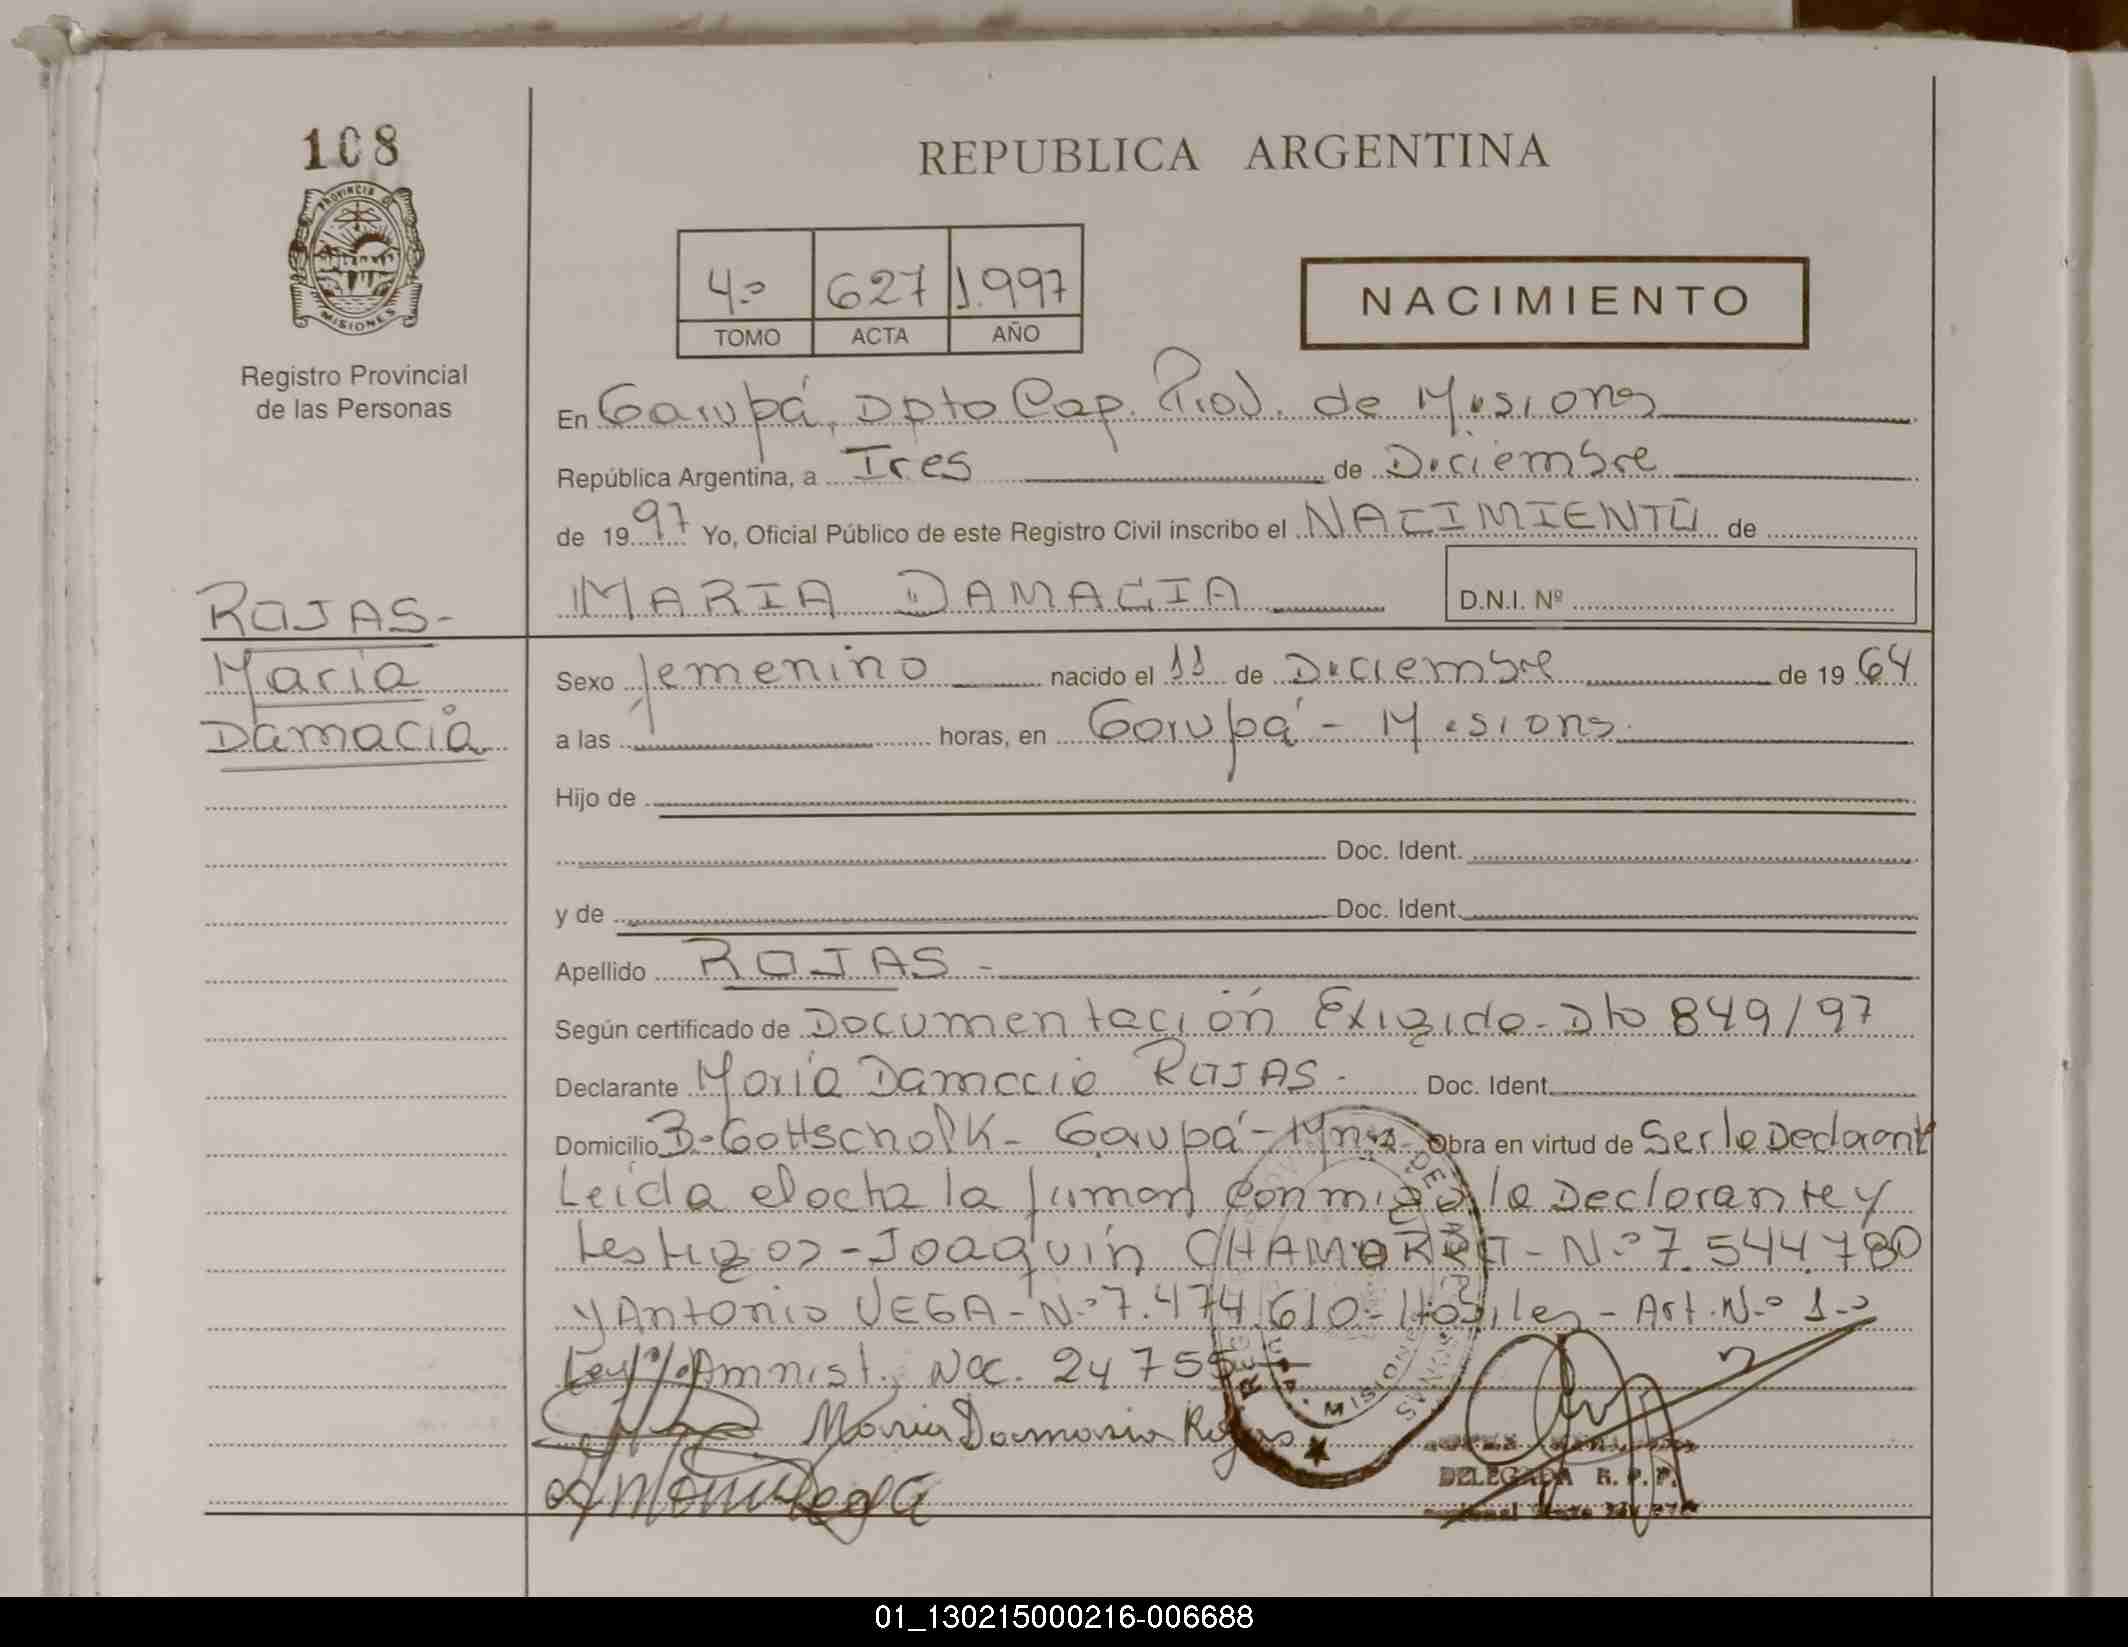 108
PROVINCIA DE
MISIONES
Registro Provincial
de las Personas
REPUBLICA ARGENTINA
4º 627 1.997
TOMO ACTA AÑO
NACIMIENTO
En Garupá, Dpto Cap. Prov. de Misiones
República Argentina, a Tres de Diciembre
de 1997 Yo, Oficial Público de este Registro Civil inscribo el NACIMIENTO de
MARIA DAMACIA D.N.I. Nº
ROJAS-
Maria
Damacia
Sexo femenino nacido el 11 de Diciembre de 1964
a las horas, en Garupá - Misiones.
Hijo de
Doc. Ident.
y de Doc. Ident.
Apellido ROJAS -
Según certificado de Documentación Exigida - Dto 849/97
Declarante María Damacia ROJAS - Doc. Ident.
Domicilio B. Gottschalk - Garupá - Mnes Obra en virtud de Ser la Declarante
Leída el acta la firman conmigo la Declarante y
testigos - Joaquín CHAMORRO - N.º 7.544.780
y Antonio VEGA - N.º 7.474.610 - Hábiles - Art. N.º 1.º
Ley Amnist. Nac. 24 755
Maria Damasia Rojas
MISIONES
Antonio Vega
DELEGADA R. P. P.
01_130215000216-006688